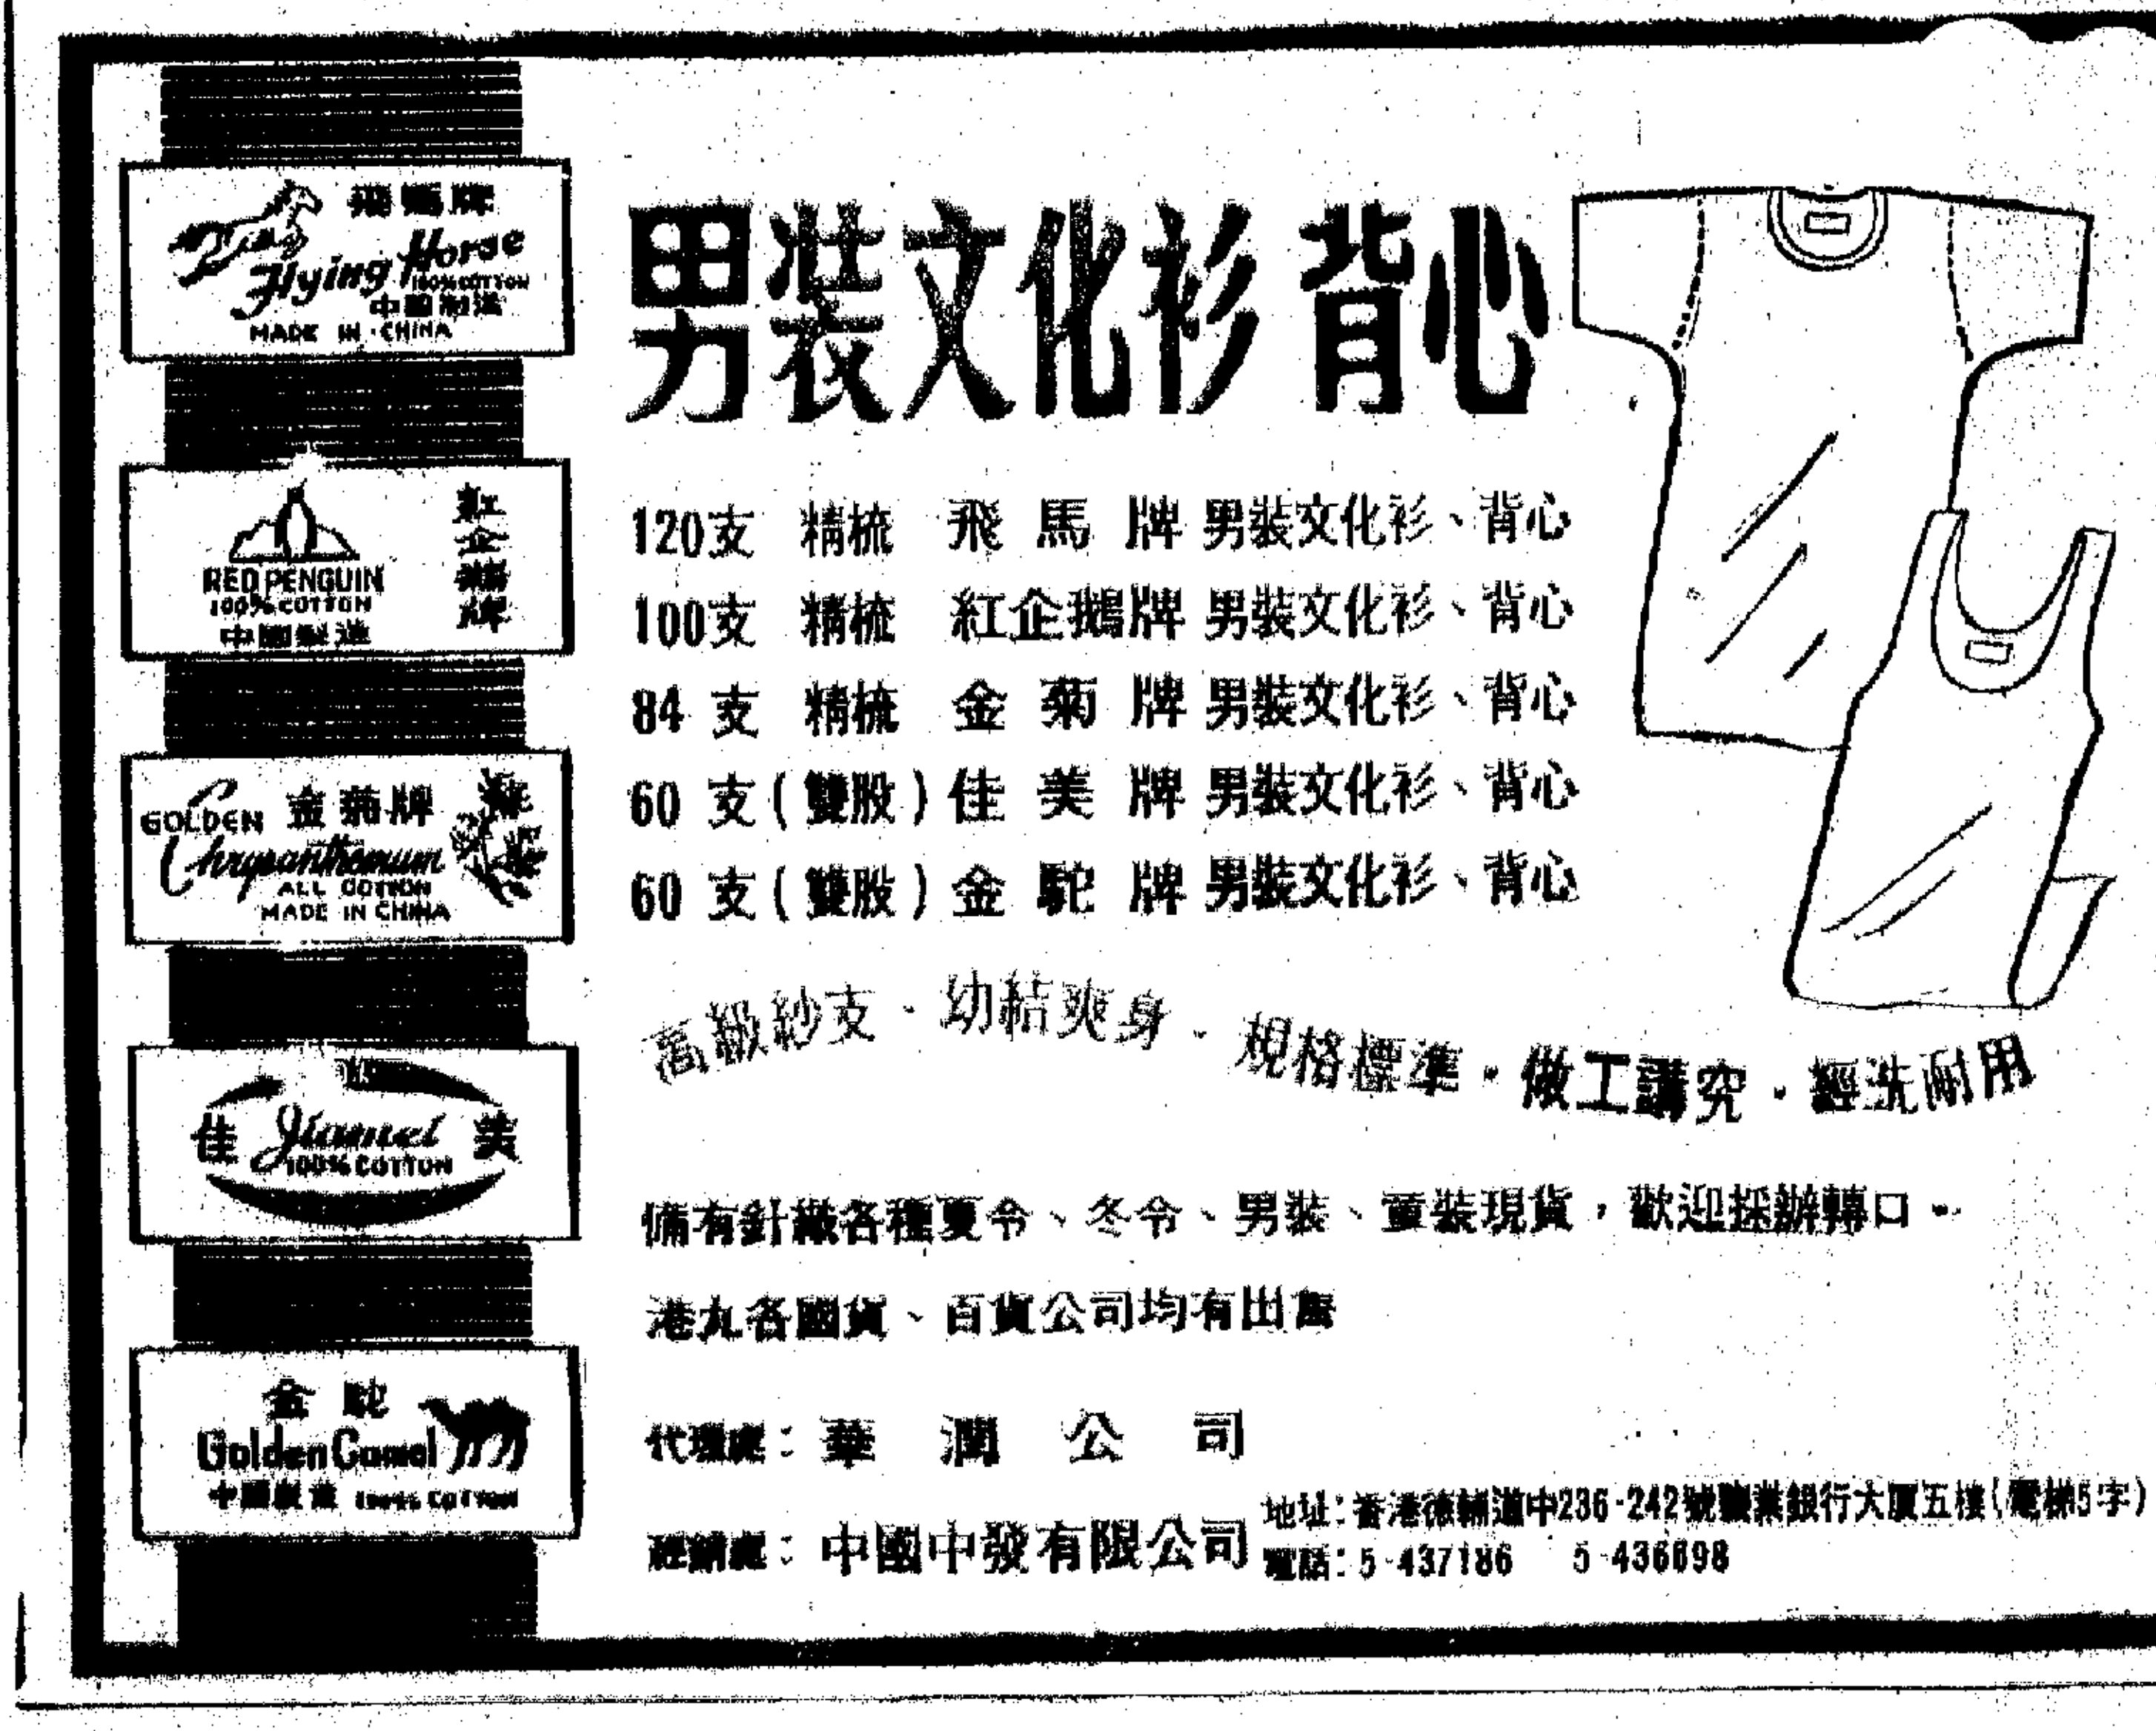 飛馬牌
Flying Horse
100% COTTON
中國制造
MADE IN CHINA
紅企鵝牌
RED PENGUIN
100% COTTON
中國製造
GOLDEN 金菊牌
Chrysanthemum
ALL COTTON
MADE IN CHINA
佳 Jiamei 美
100% COTTON
金駝
Golden Camel
中國製造 100% COTTON
男裝文化衫 背心
120支 精梳 飛馬牌 男裝文化衫、背心
100支 精梳 紅企鵝牌 男裝文化衫、背心
84支 精梳 金菊牌 男裝文化衫、背心
60支(雙股)佳美牌 男裝文化衫、背心
60支(雙股)金駝牌 男裝文化衫、背心
高級紗支·幼結爽身·規格標準·做工講究·經洗耐用
備有針織各種夏令、冬令、男裝、童裝現貨,歡迎採辦轉口。
港九各國貨、百貨公司均有出售
代理處:華潤公司
經銷處:中國中發有限公司
地址:香港德輔道中236-242號鹽業銀行大厦五樓(電梯5字)
電話:5-437186 5-436698